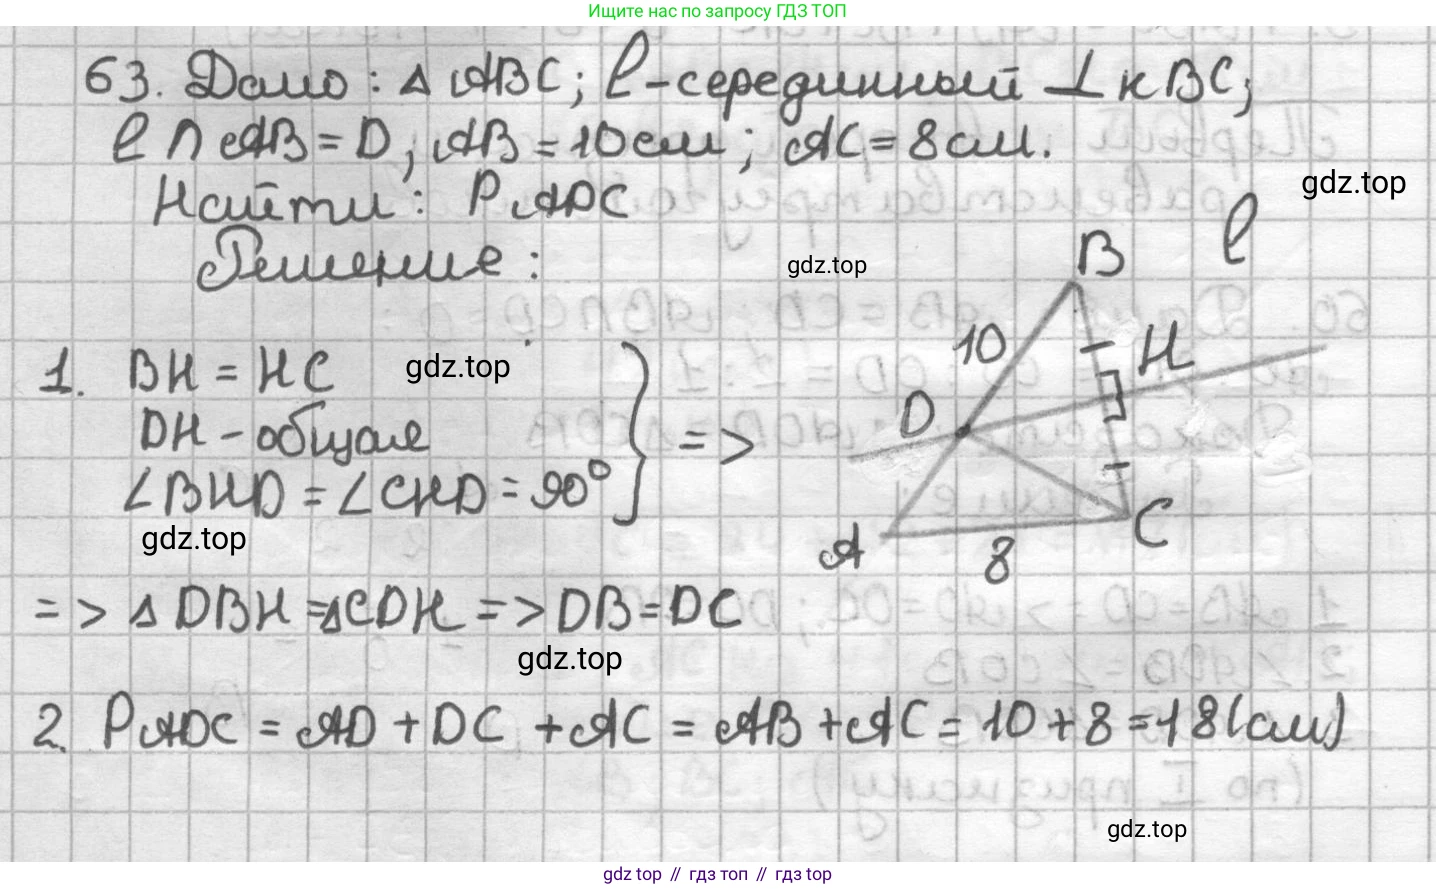 Ищите нас по запросу ГДЗ ТОП
63. Дано: Δ ABC; l-серединный ⊥ к BC;
l ∩ AB = D; AB = 10 см; AC = 8 см.
Найти: P ADC
gdz.top
Решение:
gdz.top
B
l
10
H
D
A
8
C
1. BH = HC
gdz.top
DH - общая
∠BHD = ∠CHD = 90°
} =>
gdz.top
=> Δ DBH = ΔCDH => DB = DC
gdz.top
2. P ADC = AD + DC + AC = AB + AC = 10 + 8 = 18 (см)
gdz.top
gdz top // gdz.top // гдз.top